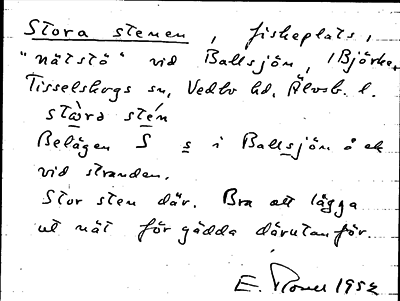 Stora stenen, fiskeplats,
"nätstö" vid Ballsjön, i Björke,
Tisselskogs sn, Vedbo hd, Älvsb. l.
stòrə sten
Belägen S s i Ballsjön å ek
vid stranden.
Stor sten där. Bra att lägga
ut nät för gädda därutanför.
E. 1952